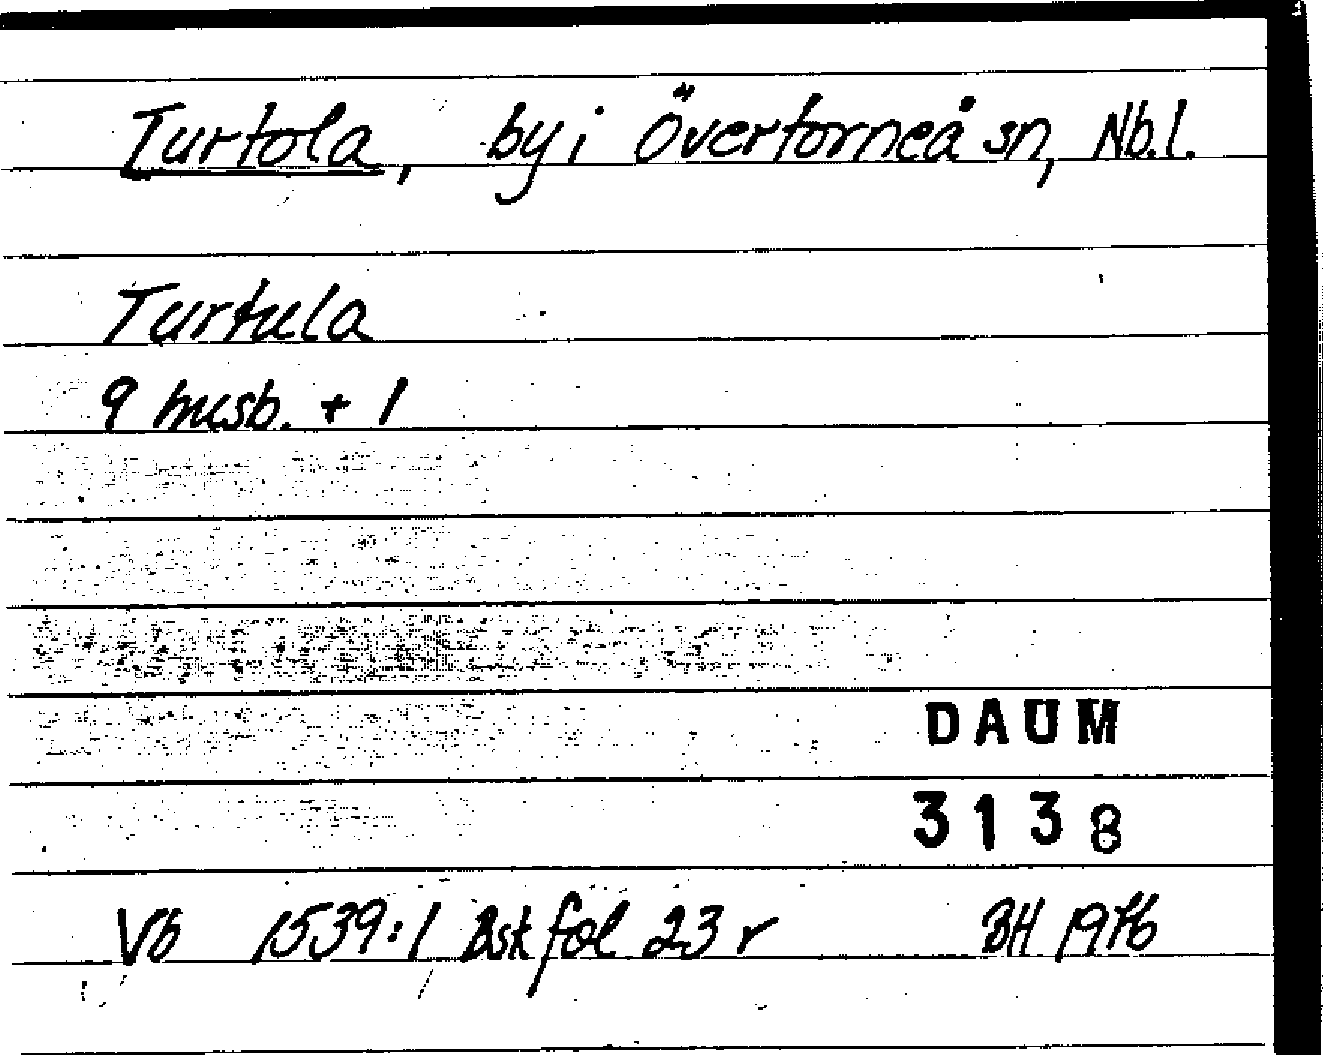 Turtola, by i Övertorneå sn, Nb.l.
Turtula
9 husb. + 1
DAUM
3138
Vb 1539:1 Bsk fol 23 r BH 1976